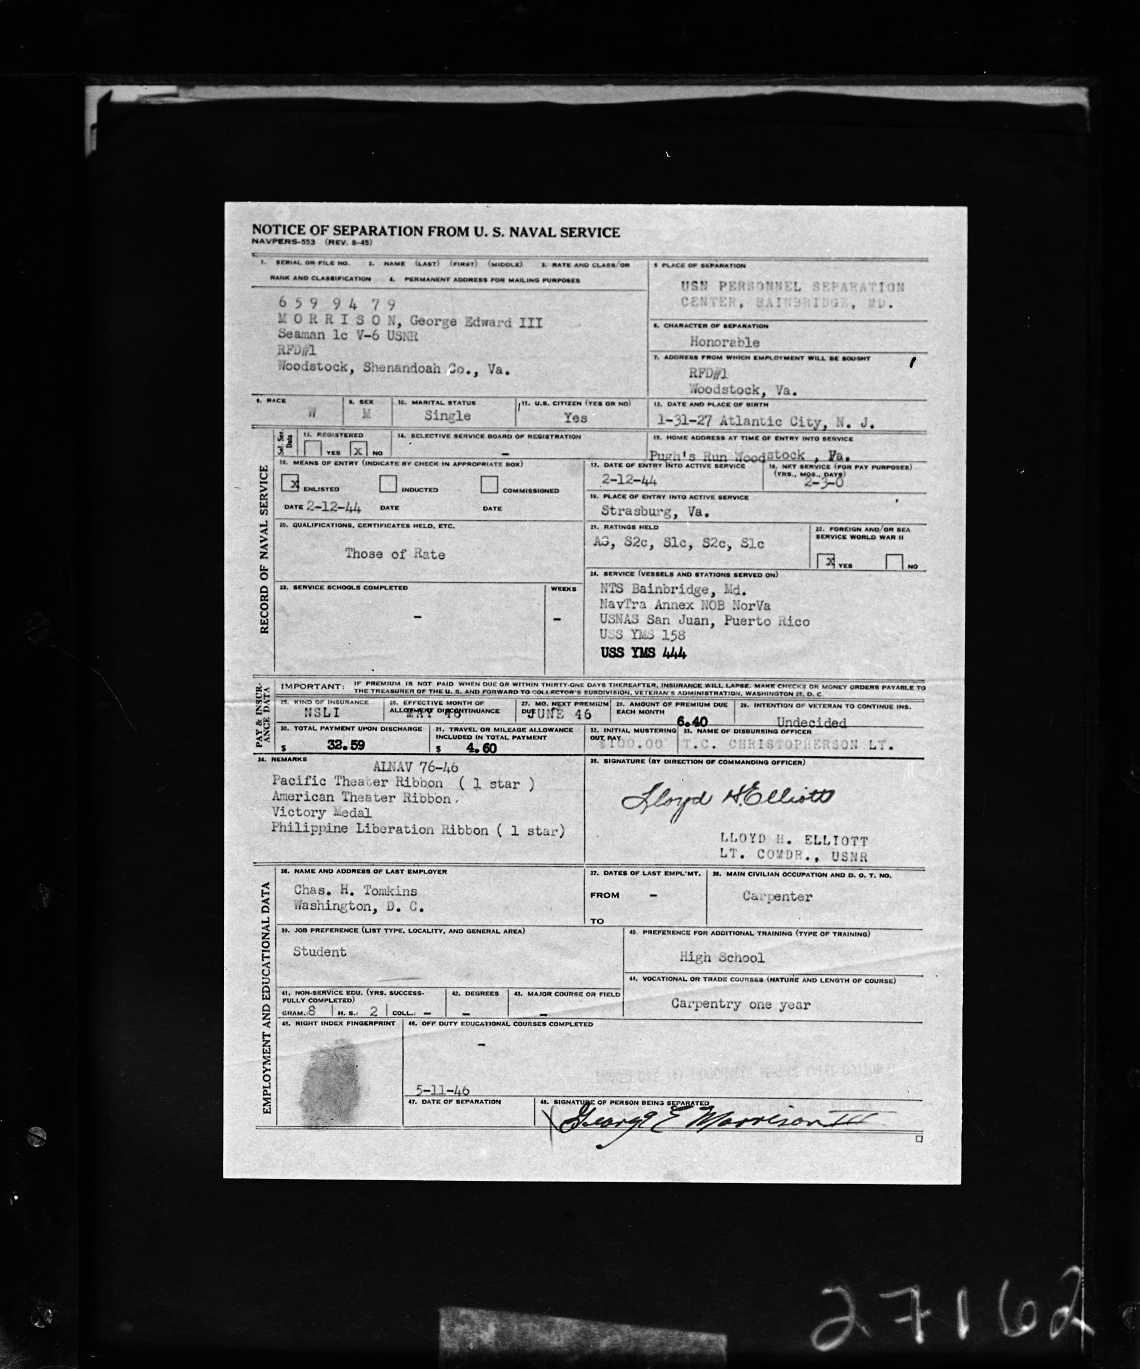 NOTICE OF SEPARATION FROM U. S. NAVAL SERVICE
NAVPERS-553 (REV. 8-45)
1. SERIAL OR FILE NO. 2. NAME (LAST) (FIRST) (MIDDLE) 3. RATE AND CLASS/OR
RANK AND CLASSIFICATION 4. PERMANENT ADDRESS FOR MAILING PURPOSES
659 94 79
MORRISON, George Edward III
Seaman 1c V-6 USNR
RFD#1
Woodstock, Shenandoah Co., Va.
5 PLACE OF SEPARATION
USN PERSONNEL SEPARATION
CENTER, BAINBRIDGE, MD.
6. CHARACTER OF SEPARATION
Honorable
7. ADDRESS FROM WHICH EMPLOYMENT WILL BE SOUGHT
RFD#1
Woodstock, Va.
8. RACE
W
9. SEX
M
10. MARITAL STATUS
Single
11. U.S. CITIZEN (YES OR NO)
Yes
12. DATE AND PLACE OF BIRTH
1-31-27 Atlantic City, N. J.
RECORD OF NAVAL SERVICE
Sel. Ser. Data
13. REGISTERED
YES X NO
14. SELECTIVE SERVICE BOARD OF REGISTRATION
-
15. HOME ADDRESS AT TIME OF ENTRY INTO SERVICE
Pugh's Run Woodstock , Va.
16. MEANS OF ENTRY (INDICATE BY CHECK IN APPROPRIATE BOX)
X ENLISTED INDUCTED COMMISSIONED
DATE 2-12-44 DATE DATE
17. DATE OF ENTRY INTO ACTIVE SERVICE
2-12-44
18. NET SERVICE (FOR PAY PURPOSES)
(YRS., MOS., DAYS)
2-3-0
19. PLACE OF ENTRY INTO ACTIVE SERVICE
Strasburg, Va.
20. QUALIFICATIONS, CERTIFICATES HELD, ETC.
Those of Rate
21. RATINGS HELD
AS, S2c, S1c, S2c, S1c
22. FOREIGN AND/OR SEA
SERVICE WORLD WAR II
X YES NO
23. SERVICE SCHOOLS COMPLETED
WEEKS
- -
24. SERVICE (VESSELS AND STATIONS SERVED ON)
NTS Bainbridge, Md.
NavTra Annex NOB NorVa
USNAS San Juan, Puerto Rico
USS YMS 158
USS YMS 444
PAY & INSURANCE DATA
IMPORTANT: IF PREMIUM IS NOT PAID WHEN DUE OR WITHIN THIRTY-ONE DAYS THEREAFTER, INSURANCE WILL LAPSE. MAKE CHECKS OR MONEY ORDERS PAYABLE TO
THE TREASURER OF THE U. S. AND FORWARD TO COLLECTOR'S SUBDIVISION, VETERAN'S ADMINISTRATION, WASHINGTON 25, D. C.
25. KIND OF INSURANCE
NSLI
26. EFFECTIVE MONTH OF
ALLOTMENT DISCONTINUANCE
MAY 46
27. MO. NEXT PREMIUM
DUE
JUNE 46
28. AMOUNT OF PREMIUM DUE
EACH MONTH
6.40
29. INTENTION OF VETERAN TO CONTINUE INS.
Undecided
30. TOTAL PAYMENT UPON DISCHARGE
$ 32.59
31. TRAVEL OR MILEAGE ALLOWANCE
INCLUDED IN TOTAL PAYMENT
$ 4.60
32. INITIAL MUSTERING
OUT PAY
$100.00
33. NAME OF DISBURSING OFFICER
T.C. CHRISTOPHERSON LT.
34. REMARKS
ALNAV 76-46
Pacific Theater Ribbon ( 1 star )
American Theater Ribbon
Victory Medal
Philippine Liberation Ribbon ( 1 star)
35. SIGNATURE (BY DIRECTION OF COMMANDING OFFICER)
Lloyd H Elliott
LLOYD H. ELLIOTT
LT. COMDR., USNR
EMPLOYMENT AND EDUCATIONAL DATA
36. NAME AND ADDRESS OF LAST EMPLOYER
Chas. H. Tomkins
Washington, D. C.
37. DATES OF LAST EMPL'MT.
FROM -
TO
38. MAIN CIVILIAN OCCUPATION AND D. O. T. NO.
Carpenter
39. JOB PREFERENCE (LIST TYPE, LOCALITY, AND GENERAL AREA)
Student
40. PREFERENCE FOR ADDITIONAL TRAINING (TYPE OF TRAINING)
High School
41. NON-SERVICE EDU. (YRS. SUCCESS-
FULLY COMPLETED)
GRAM.: 8 H. S.: 2 COLL.: -
42. DEGREES
-
43. MAJOR COURSE OR FIELD
-
44. VOCATIONAL OR TRADE COURSES (NATURE AND LENGTH OF COURSE)
Carpentry one year
45. RIGHT INDEX FINGERPRINT
46. OFF DUTY EDUCATIONAL COURSES COMPLETED
-
5-11-46
47. DATE OF SEPARATION
48. SIGNATURE OF PERSON BEING SEPARATED
George E Morrison III
27162